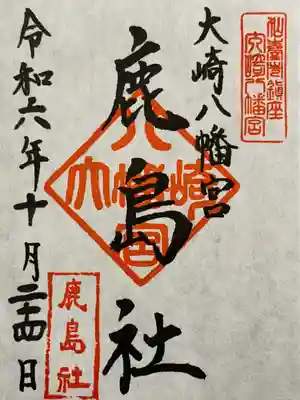 仙臺市鎮座
大崎八幡宮
大崎八幡宮
鹿島社
大崎八幡宮
令和六年十月二十四日
鹿島社